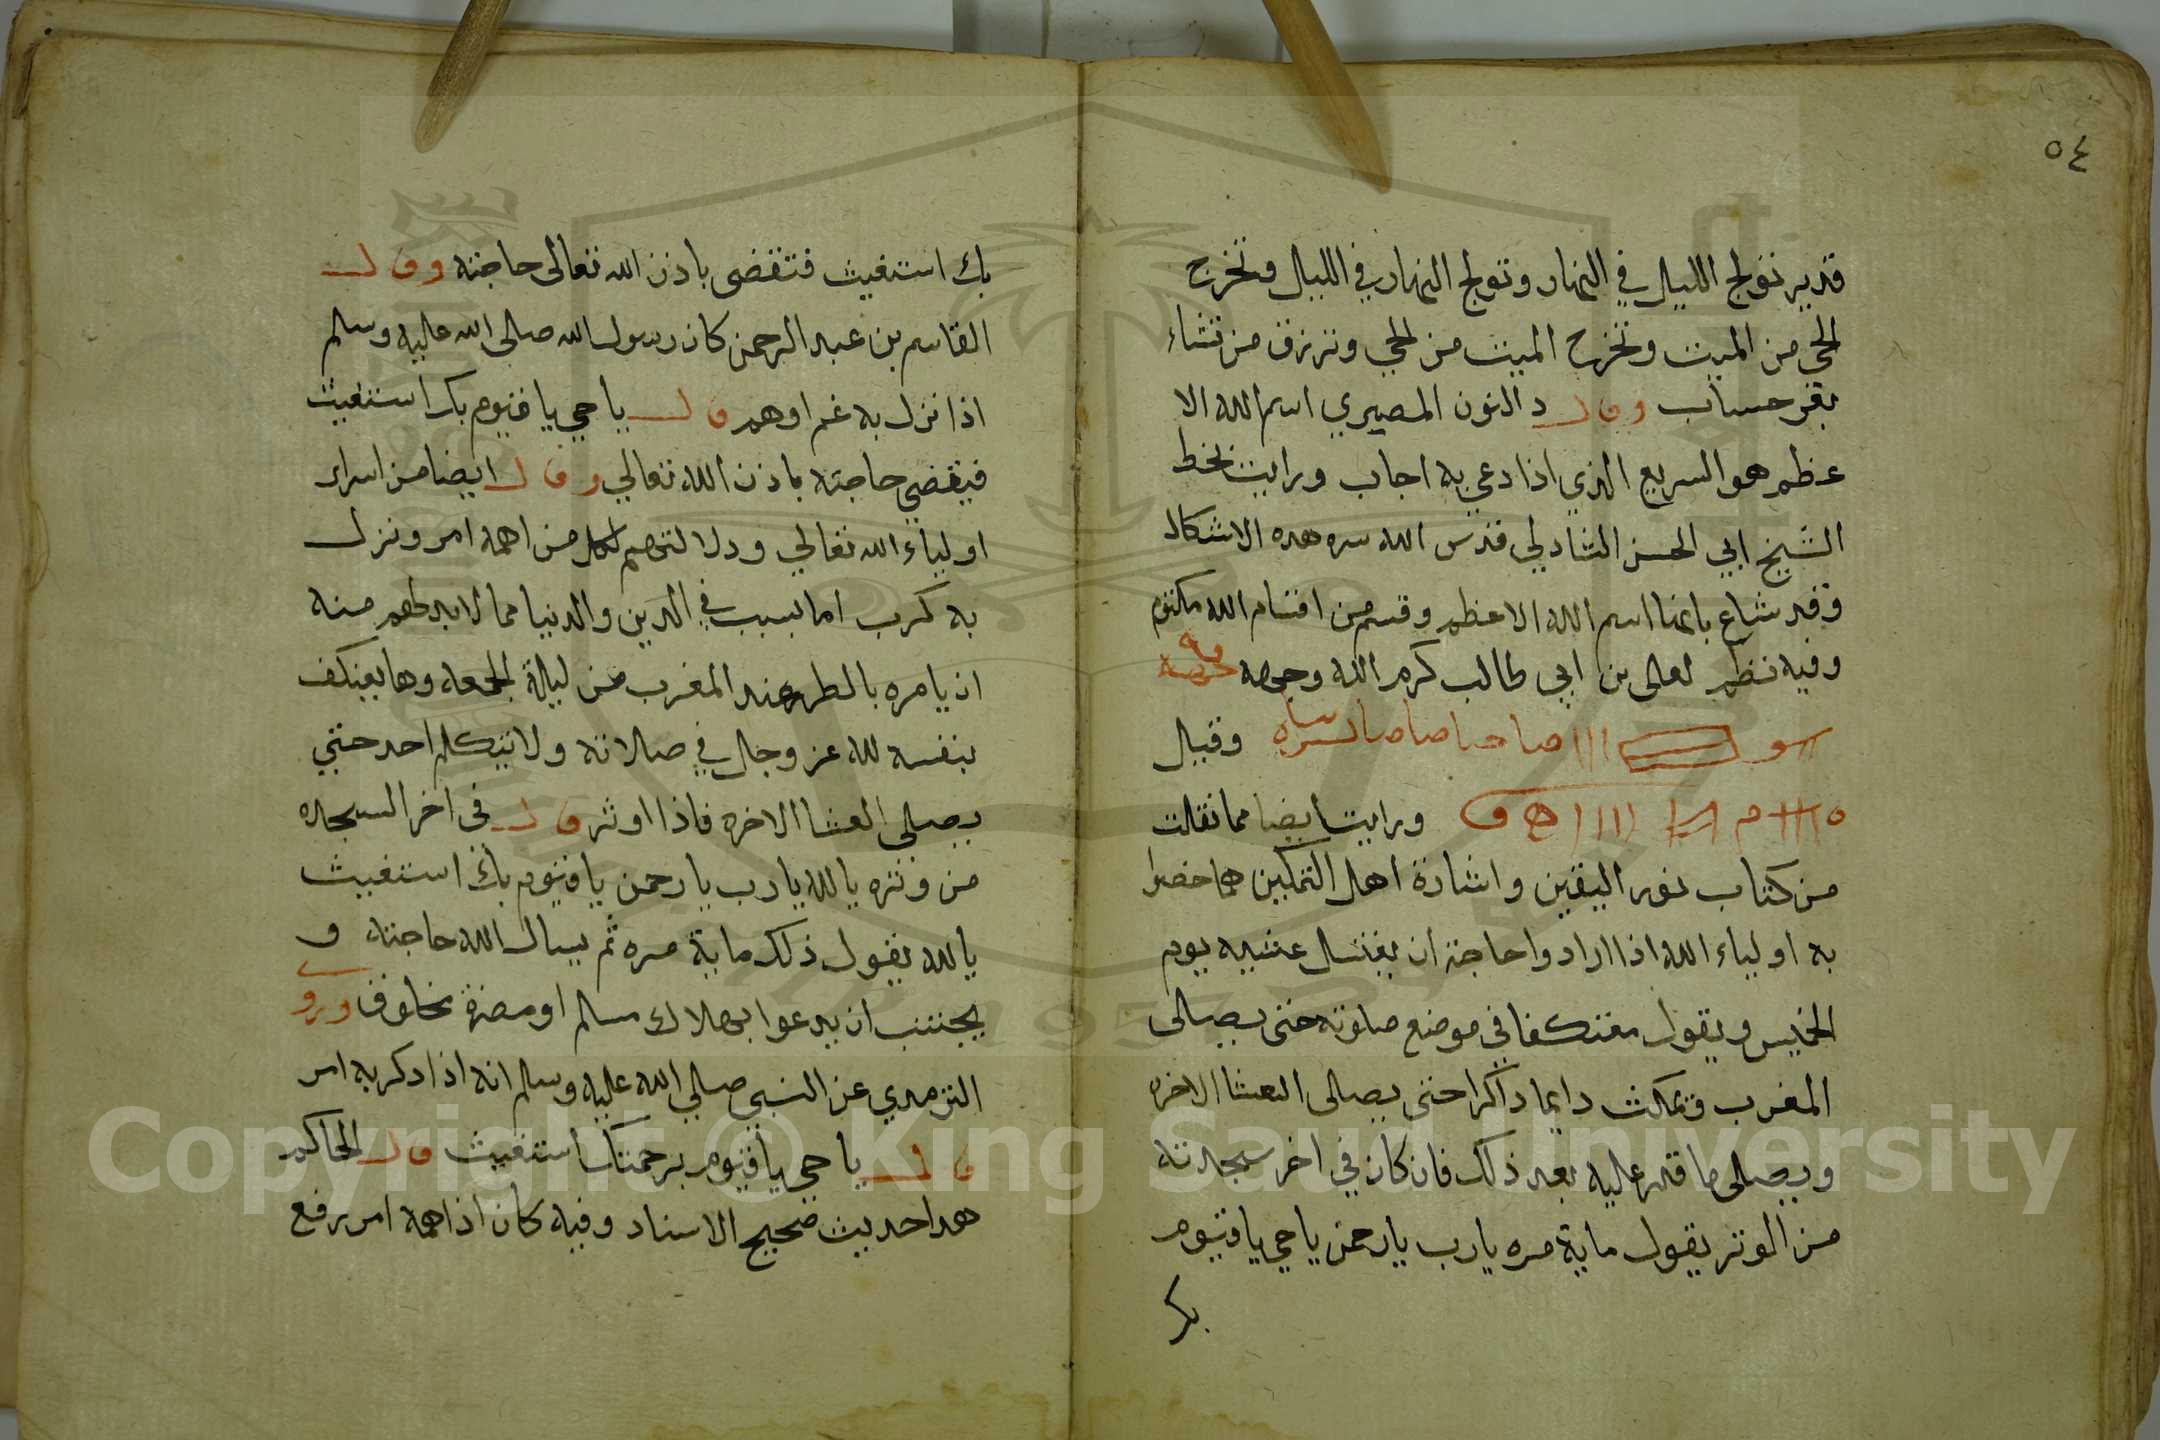 ٥٤
قدير تولج الليل في النهار وتولج النهار في الليل وتخرج
الحي من الميت وتخرج الميت من الحي وترزق من تشاء
بغير حساب وقال د النون المصيري اسم الله الا
عظم هو السريع الذي اذا دعي به اجاب ورايت بخط
الشيخ ابي الحسن الشادلي قدس الله سره هده الاشكال
وقد شاع بانها اسم الله الاعظم وقسم من اقسام الله مكتوم
وفيه نظم لعلى بن ابي طالب كرم الله وجهه
وقيل
ورايت ايضا مما نقلت
من كتاب نور اليقين واشارة اهل التمكين مما خصوا
به اولياء الله اذا ارادوا حاجة ان يغتسل عشيه يوم
الخميس ويقول معتكفا في موضع صلوته حتى يصلى
المغرب ويمكث دايما داكرا حتى يصلى العشا الاخره
ويصلى ما قدر عليه بعد ذلك فان كان في اخر سجدته
من الوتر يقول ماية مره يارب يارحمن ياحي ياقيوم
بك
بك استغيث فتقضى باذن الله تعالى حاجته وقال
القاسم بن عبد الرحمن كان رسول الله صلى الله عليه وسلم
اذا نزل به غم اوهم قال ياحي ياقيوم بك استغيث
فيقضي حاجته باذن الله تعالي وقال ايضا من اسرار
اولياء الله تعالي ودلالتهم لكل من اهمه امر ونزل
به كرب اما بسبب في الدين والدنيا مما لابد لهم منه
ان يامره بالطهر عند المغرب من ليلة الجمعه وها يعتكف
بنفسه لله عز وجل في صلاته ولا يتكلم احد حتي
يصلى العشا الاخره فاذا اوتر قال في اخر السجده
من وتره يالله يارب يارحمن ياقيوم بك استغيث
يالله يقول ذلك ماية مره ثم يسال الله حاجته و
يجتنب ان يدعوا بهلاك مسلم او مضرة مخلوف وروي
الترمدي عن النبي صلي الله عليه وسلم انه اذا دكر به امر
قال يا حي ياقيوم برحمتك استغيث قال الحاكم
هدا حديث صحيح الاسناد وفيه كان اذا همه امر رفع
Copyright © King Saud University